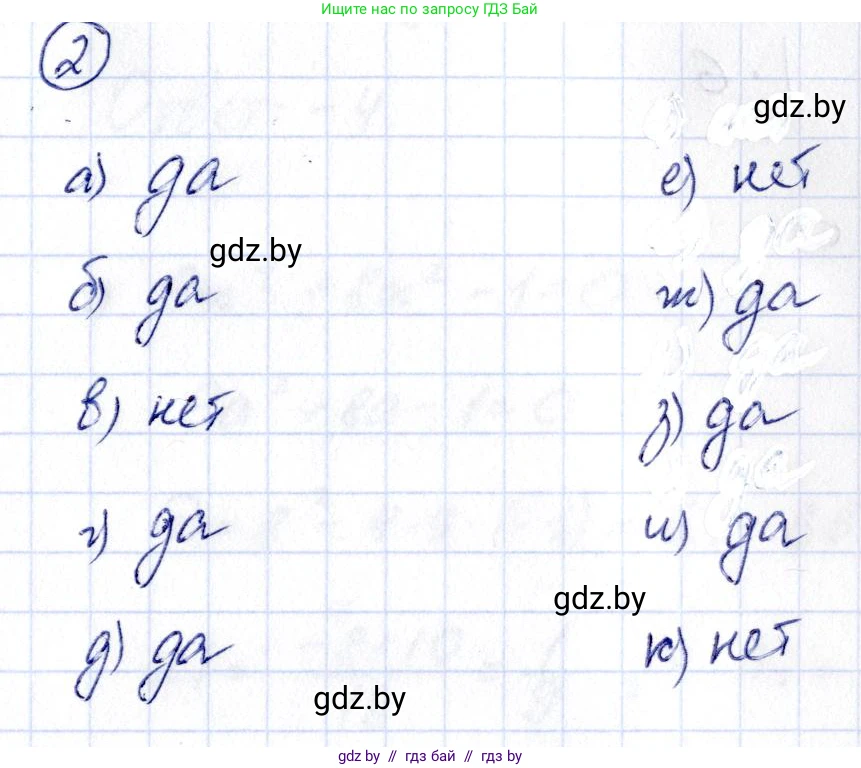 Ищите нас по запросу ГДЗ Бай
2
gdz.by
а) да
е) нет
gdz.by
б) да
ж) да
в) нет
з) да
г) да
и) да
gdz.by
д) да
к) нет
gdz.by
gdz by // гдз бай // гдз by